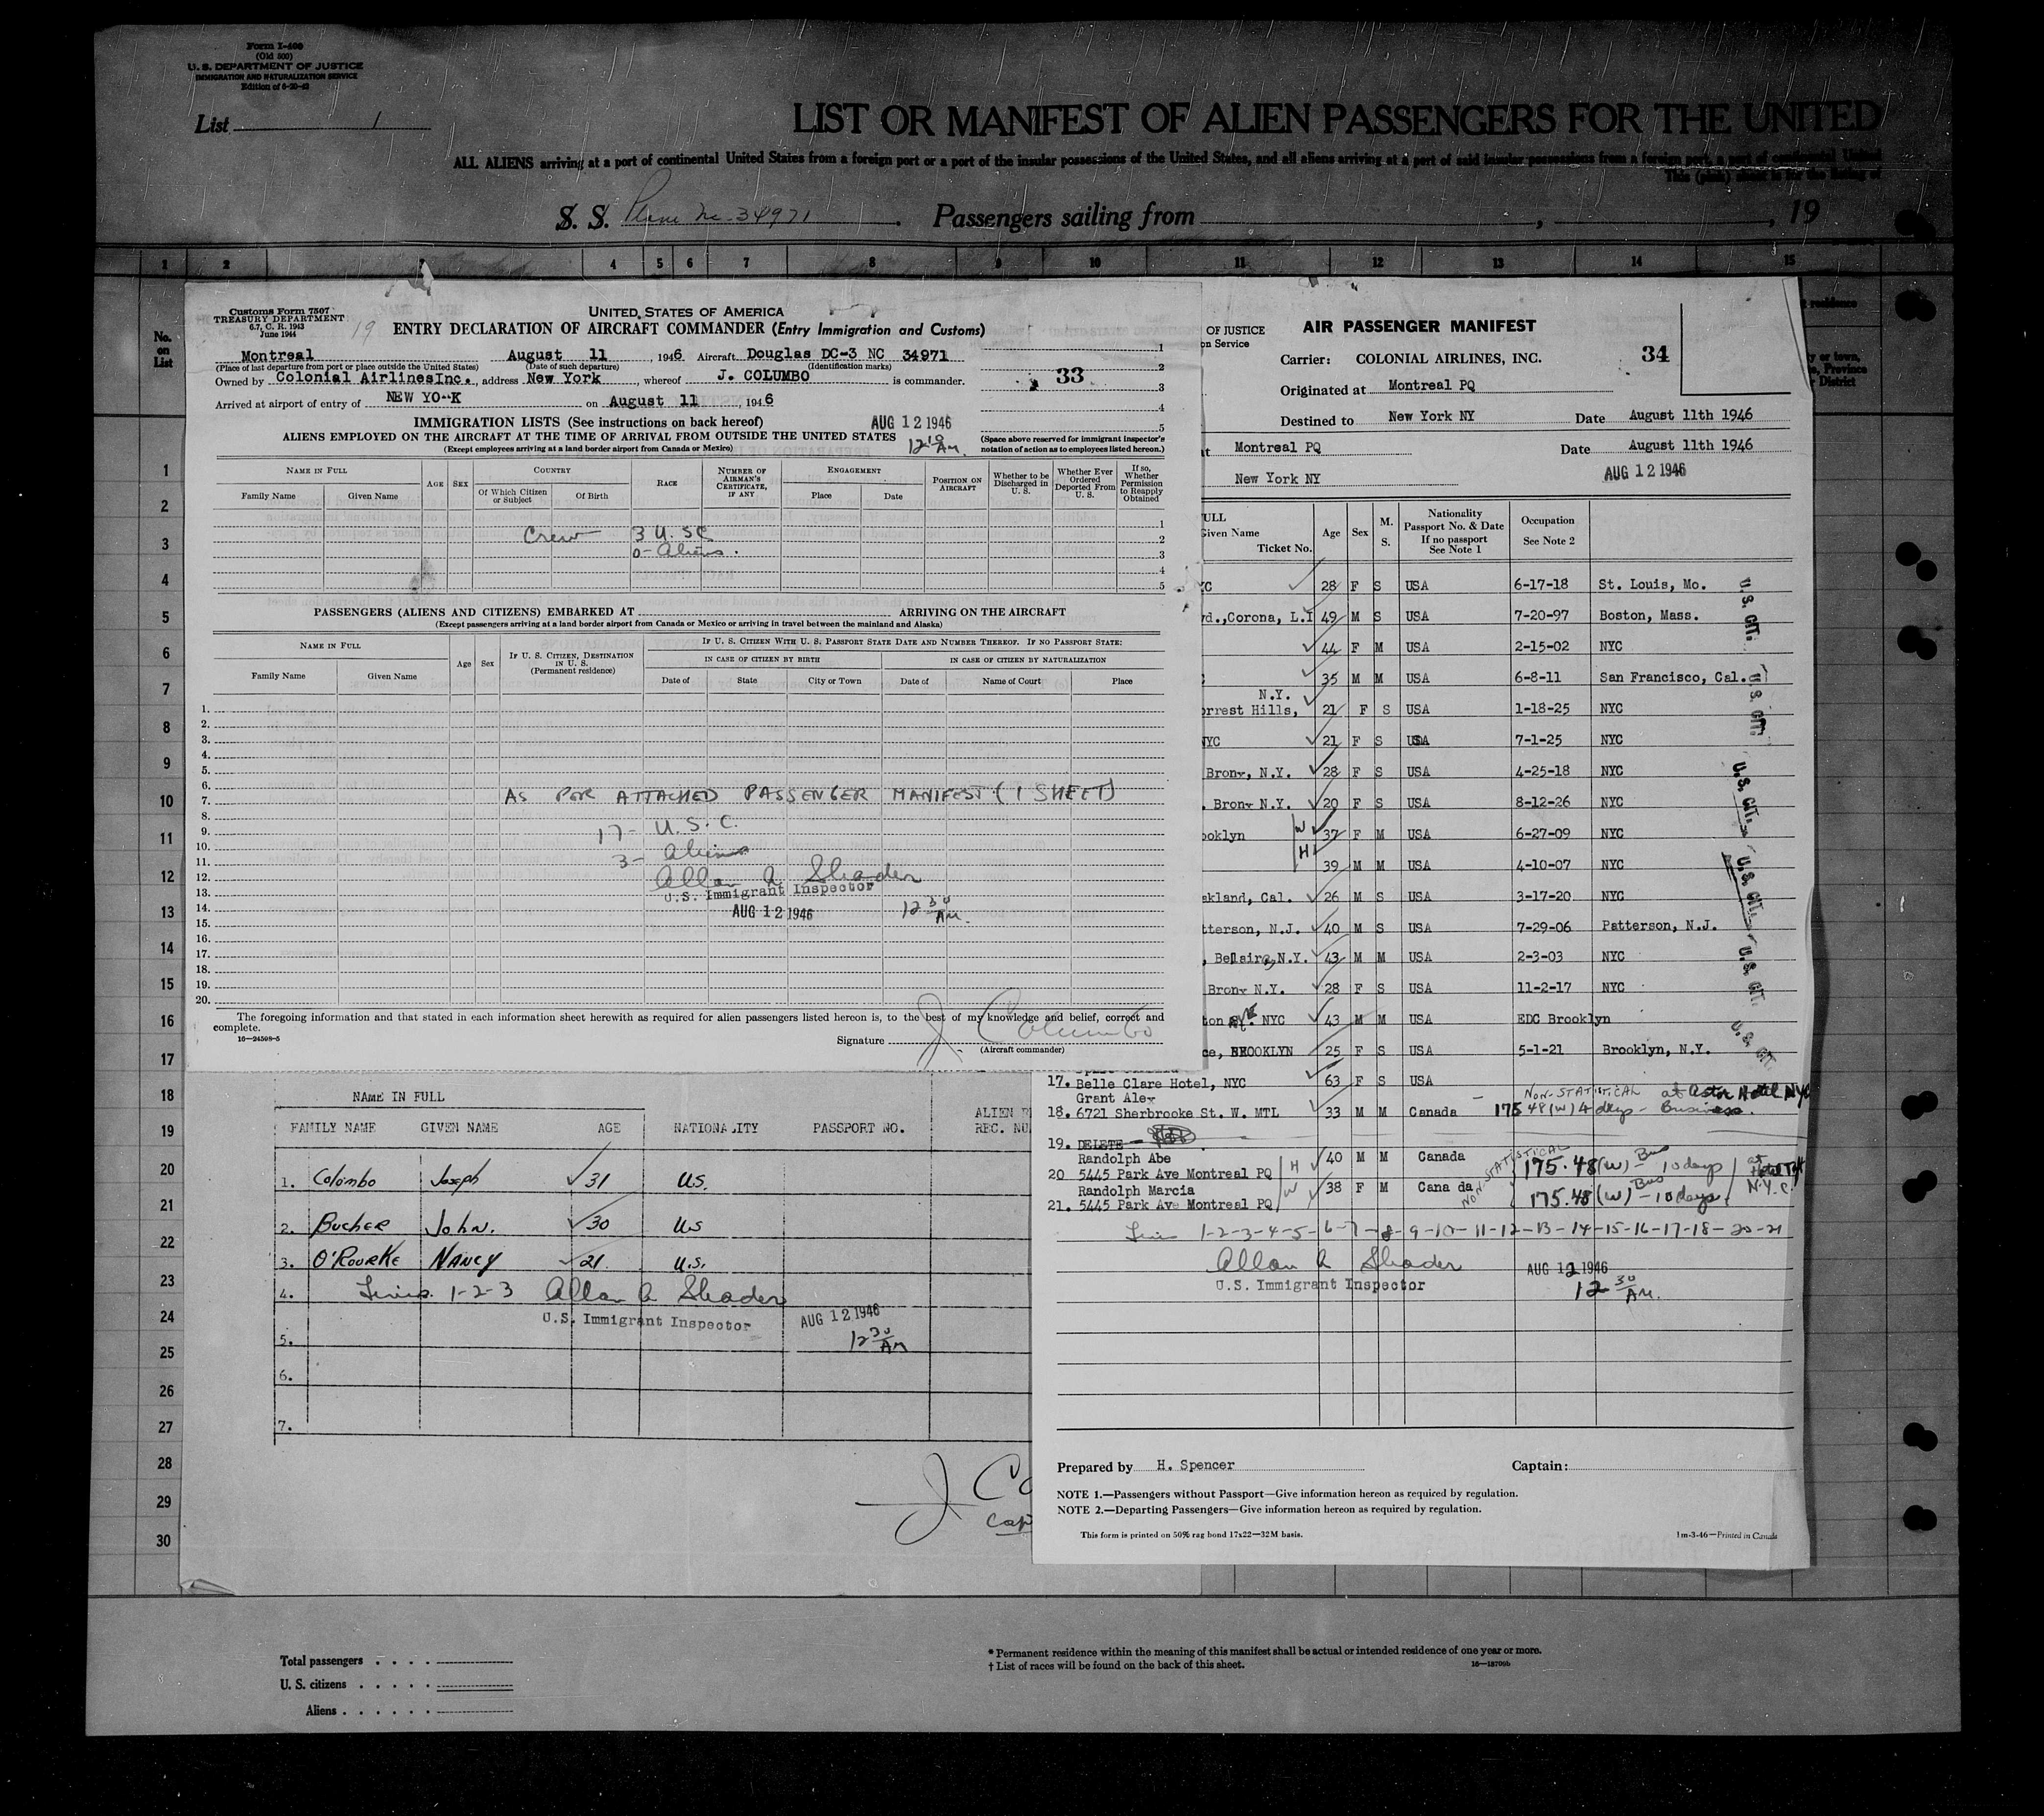 Form I-400
(Old 500)
U. S. DEPARTMENT OF JUSTICE
IMMIGRATION AND NATURALIZATION SERVICE
Edition of 6-20-42
List 1
LIST OR MANIFEST OF ALIEN PASSENGERS FOR THE UNITED
ALL ALIENS arriving at a port of continental United States from a foreign port or a port of the insular possessions of the United States, and all aliens arriving at a port of said insular possessions from a foreign port, a port of continental United
S. S. Plane No. 34971 Passengers sailing from , , 19
1 2 3 4 5 6 7 8 9 10 11 12 13 14 15
No. on List
Customs Form 7507
TREASURY DEPARTMENT
6.7, C. R. 1943
June 1944
19
UNITED STATES OF AMERICA
ENTRY DECLARATION OF AIRCRAFT COMMANDER (Entry Immigration and Customs)
Montreal August 11, 1946 Aircraft Douglas DC-3 NC 34971
(Place of last departure from port or place outside the United States) (Date of such departure) (Identification marks)
Owned by Colonial AirlinesInc., address New York, whereof J. COLUMBO is commander.
33
Arrived at airport of entry of NEW YO--K on August 11, 1946
1
2
3
4
5
IMMIGRATION LISTS (See instructions on back hereof)
AUG 12 1946
ALIENS EMPLOYED ON THE AIRCRAFT AT THE TIME OF ARRIVAL FROM OUTSIDE THE UNITED STATES
12 10 AM.
(Except employees arriving at a land border airport from Canada or Mexico)
(Space above reserved for immigrant inspector's notation of action as to employees listed hereon.)
NAME IN FULL
Family Name Given Name
AGE SEX
COUNTRY
Of Which Citizen or Subject Of Birth
RACE
NUMBER OF AIRMAN'S CERTIFICATE, IF ANY
ENGAGEMENT
Place Date
POSITION ON AIRCRAFT
Whether to be Discharged in U. S.
Whether Ever Ordered Deported From U. S.
If so, Whether Permission to Reapply Obtained
Crew 3 U. SC
0 - Aliens.
1
2
3
4
5
PASSENGERS (ALIENS AND CITIZENS) EMBARKED AT ARRIVING ON THE AIRCRAFT
(Except passengers arriving at a land border airport from Canada or Mexico or arriving in travel between the mainland and Alaska)
NAME IN FULL
Family Name Given Name
Age Sex
IF U. S. CITIZEN, DESTINATION IN U. S.
(Permanent residence)
IF U. S. CITIZEN WITH U. S. PASSPORT STATE DATE AND NUMBER THEREOF. IF NO PASSPORT STATE:
IN CASE OF CITIZEN BY BIRTH IN CASE OF CITIZEN BY NATURALIZATION
Date of State City or Town Date of Name of Court Place
1.
2.
3.
4.
5.
6.
7. AS PER ATTACHED PASSENGER MANIFEST (1 SHEET)
8.
9. 17- U. S. C.
10.
11. 3- Aliens
12. Allan A Shader
13. U.S. Immigrant Inspector
14. AUG 12 1946 12 30 AM.
15.
16.
17.
18.
19.
20.
The foregoing information and that stated in each information sheet herewith as required for alien passengers listed hereon is, to the best of my knowledge and belief, correct and
complete.
16—24598-5
Signature J. Columbo
(Aircraft commander)
OF JUSTICE
on Service
AIR PASSENGER MANIFEST
34
Carrier: COLONIAL AIRLINES, INC.
Originated at Montreal PQ
Destined to New York NY Date August 11th 1946
Montreal PQ Date August 11th 1946
New York NY AUG 12 1946
ULL
Given Name Ticket No.
Age Sex M. S.
Nationality Passport No. & Date If no passport See Note 1
Occupation See Note 2
YC 28 F S USA 6-17-18 St. Louis, Mo. U.S. CIT.
vd.,Corona, L.I 49 M S USA 7-20-97 Boston, Mass.
44 F M USA 2-15-02 NYC
35 M M USA 6-8-11 San Francisco, Cal. U.S. CIT.
N.Y.
orrest Hills, 21 F S USA 1-18-25 NYC
NYC 21 F S USA 7-1-25 NYC
Bronx, N.Y. 28 F S USA 4-25-18 NYC U.S. CIT.
. Bronx N.Y. 20 F S USA 8-12-26 NYC
ooklyn W 37 F M USA 6-27-09 NYC
H 39 M M USA 4-10-07 NYC U.S. CIT.
akland, Cal. 26 M S USA 3-17-20 NYC
tterson, N.J. 40 M S USA 7-29-06 Patterson, N.J.
, Belaire, N.Y. 43 M M USA 2-3-03 NYC U.S. CIT.
Bronx N.Y. 28 F S USA 11-2-17 NYC
ton Ave. NYC 43 M M USA EDC Brooklyn
ce, BROOKLYN 25 F S USA 5-1-21 Brooklyn, N.Y. U.S. CIT.
17. Belle Clare Hotel, NYC 63 F S USA
Grant Alex NON-STATISTICAL at Astor Hotel NYC
18. 6721 Sherbrooke St. W. MTL 33 M M Canada 175 48 (W) 4 days - Business.
19. DELETE
Randolph Abe
20 5445 Park Ave Montreal PQ H 40 M M Canada NON-STATISTICAL 175.48 (W) - Bus 10 days at Hotel Taft N.Y.C.
Randolph Marcia
21. 5445 Park Ave Montreal PQ W 38 F M Cana da 175.48 (W) Bus - 10 days
Lines 1-2-3-4-5-6-7-8-9-10-11-12-13-14-15-16-17-18-20-21
Allan A Shader AUG 12 1946
U.S. Immigrant Inspector 12 30 AM.
Prepared by H. Spencer Captain:
NOTE 1.—Passengers without Passport—Give information hereon as required by regulation.
NOTE 2.—Departing Passengers—Give information hereon as required by regulation.
This form is printed on 50% rag bond 17x22—32M basis. 1m-3-46—Printed in Canada
NAME IN FULL
FAMILY NAME GIVEN NAME AGE NATIONALITY PASSPORT NO. ALIEN R REC. NU
1. Colombo Joseph 31 U.S.
2. BUCHER JOHN. 30 US
3. O'ROURKE NANCY 21. U.S.
4. Lines. 1-2-3 Allan A Shader
U.S. Immigrant Inspector AUG 12 1946
5. 12 30 AM
6.
7.
J Co
Cap
1
2
3
4
5
6
7
8
9
10
11
12
13
14
15
16
17
18
19
20
21
22
23
24
25
26
27
28
29
30
residence
y or town,
e, Province
District
Total passengers . . . .
U. S. citizens . . . . .
Aliens . . . . .
* Permanent residence within the meaning of this manifest shall be actual or intended residence of one year or more.
† List of races will be found on the back of this sheet. 16—18700b